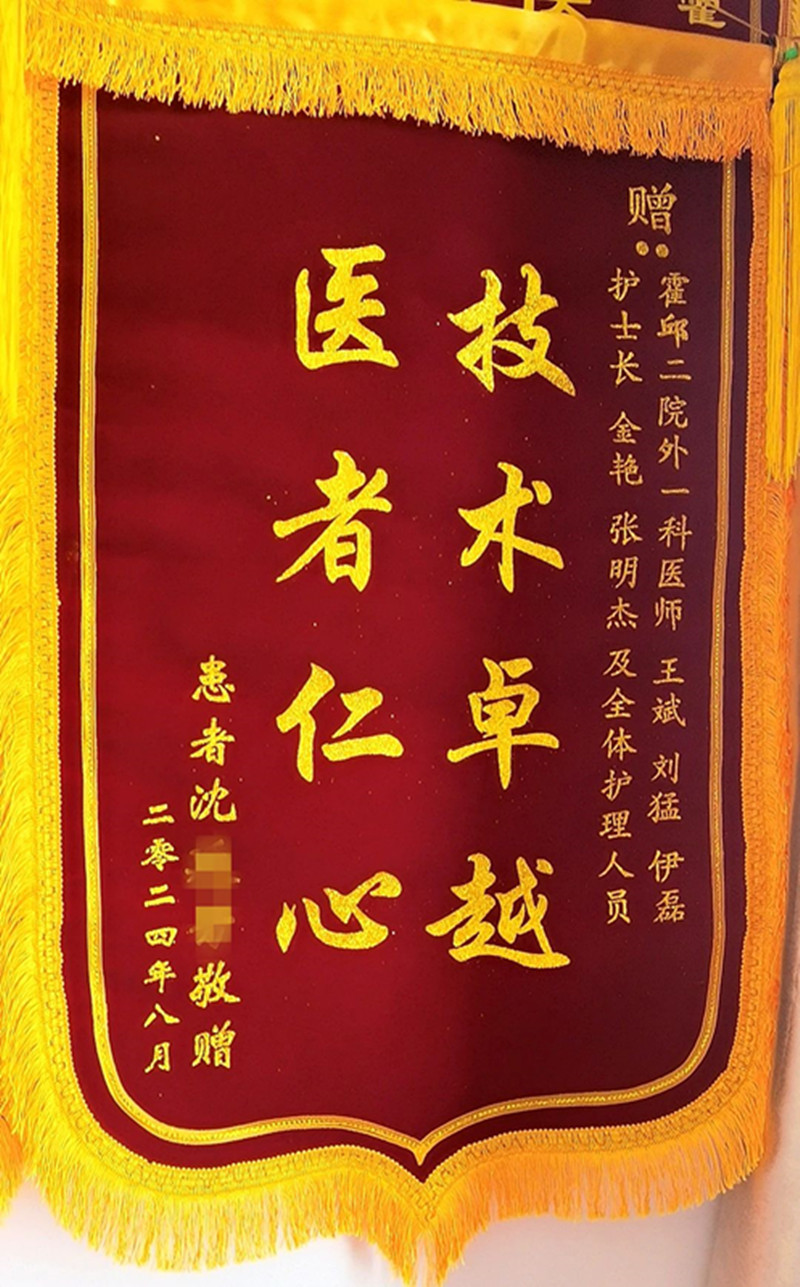 赠：
霍邱二院外一科医师 王斌 刘猛 伊磊
护士长 金艳 张明杰 及全体护理人员
技术卓越
医者仁心
患者沈 敬赠
二零二四年八月